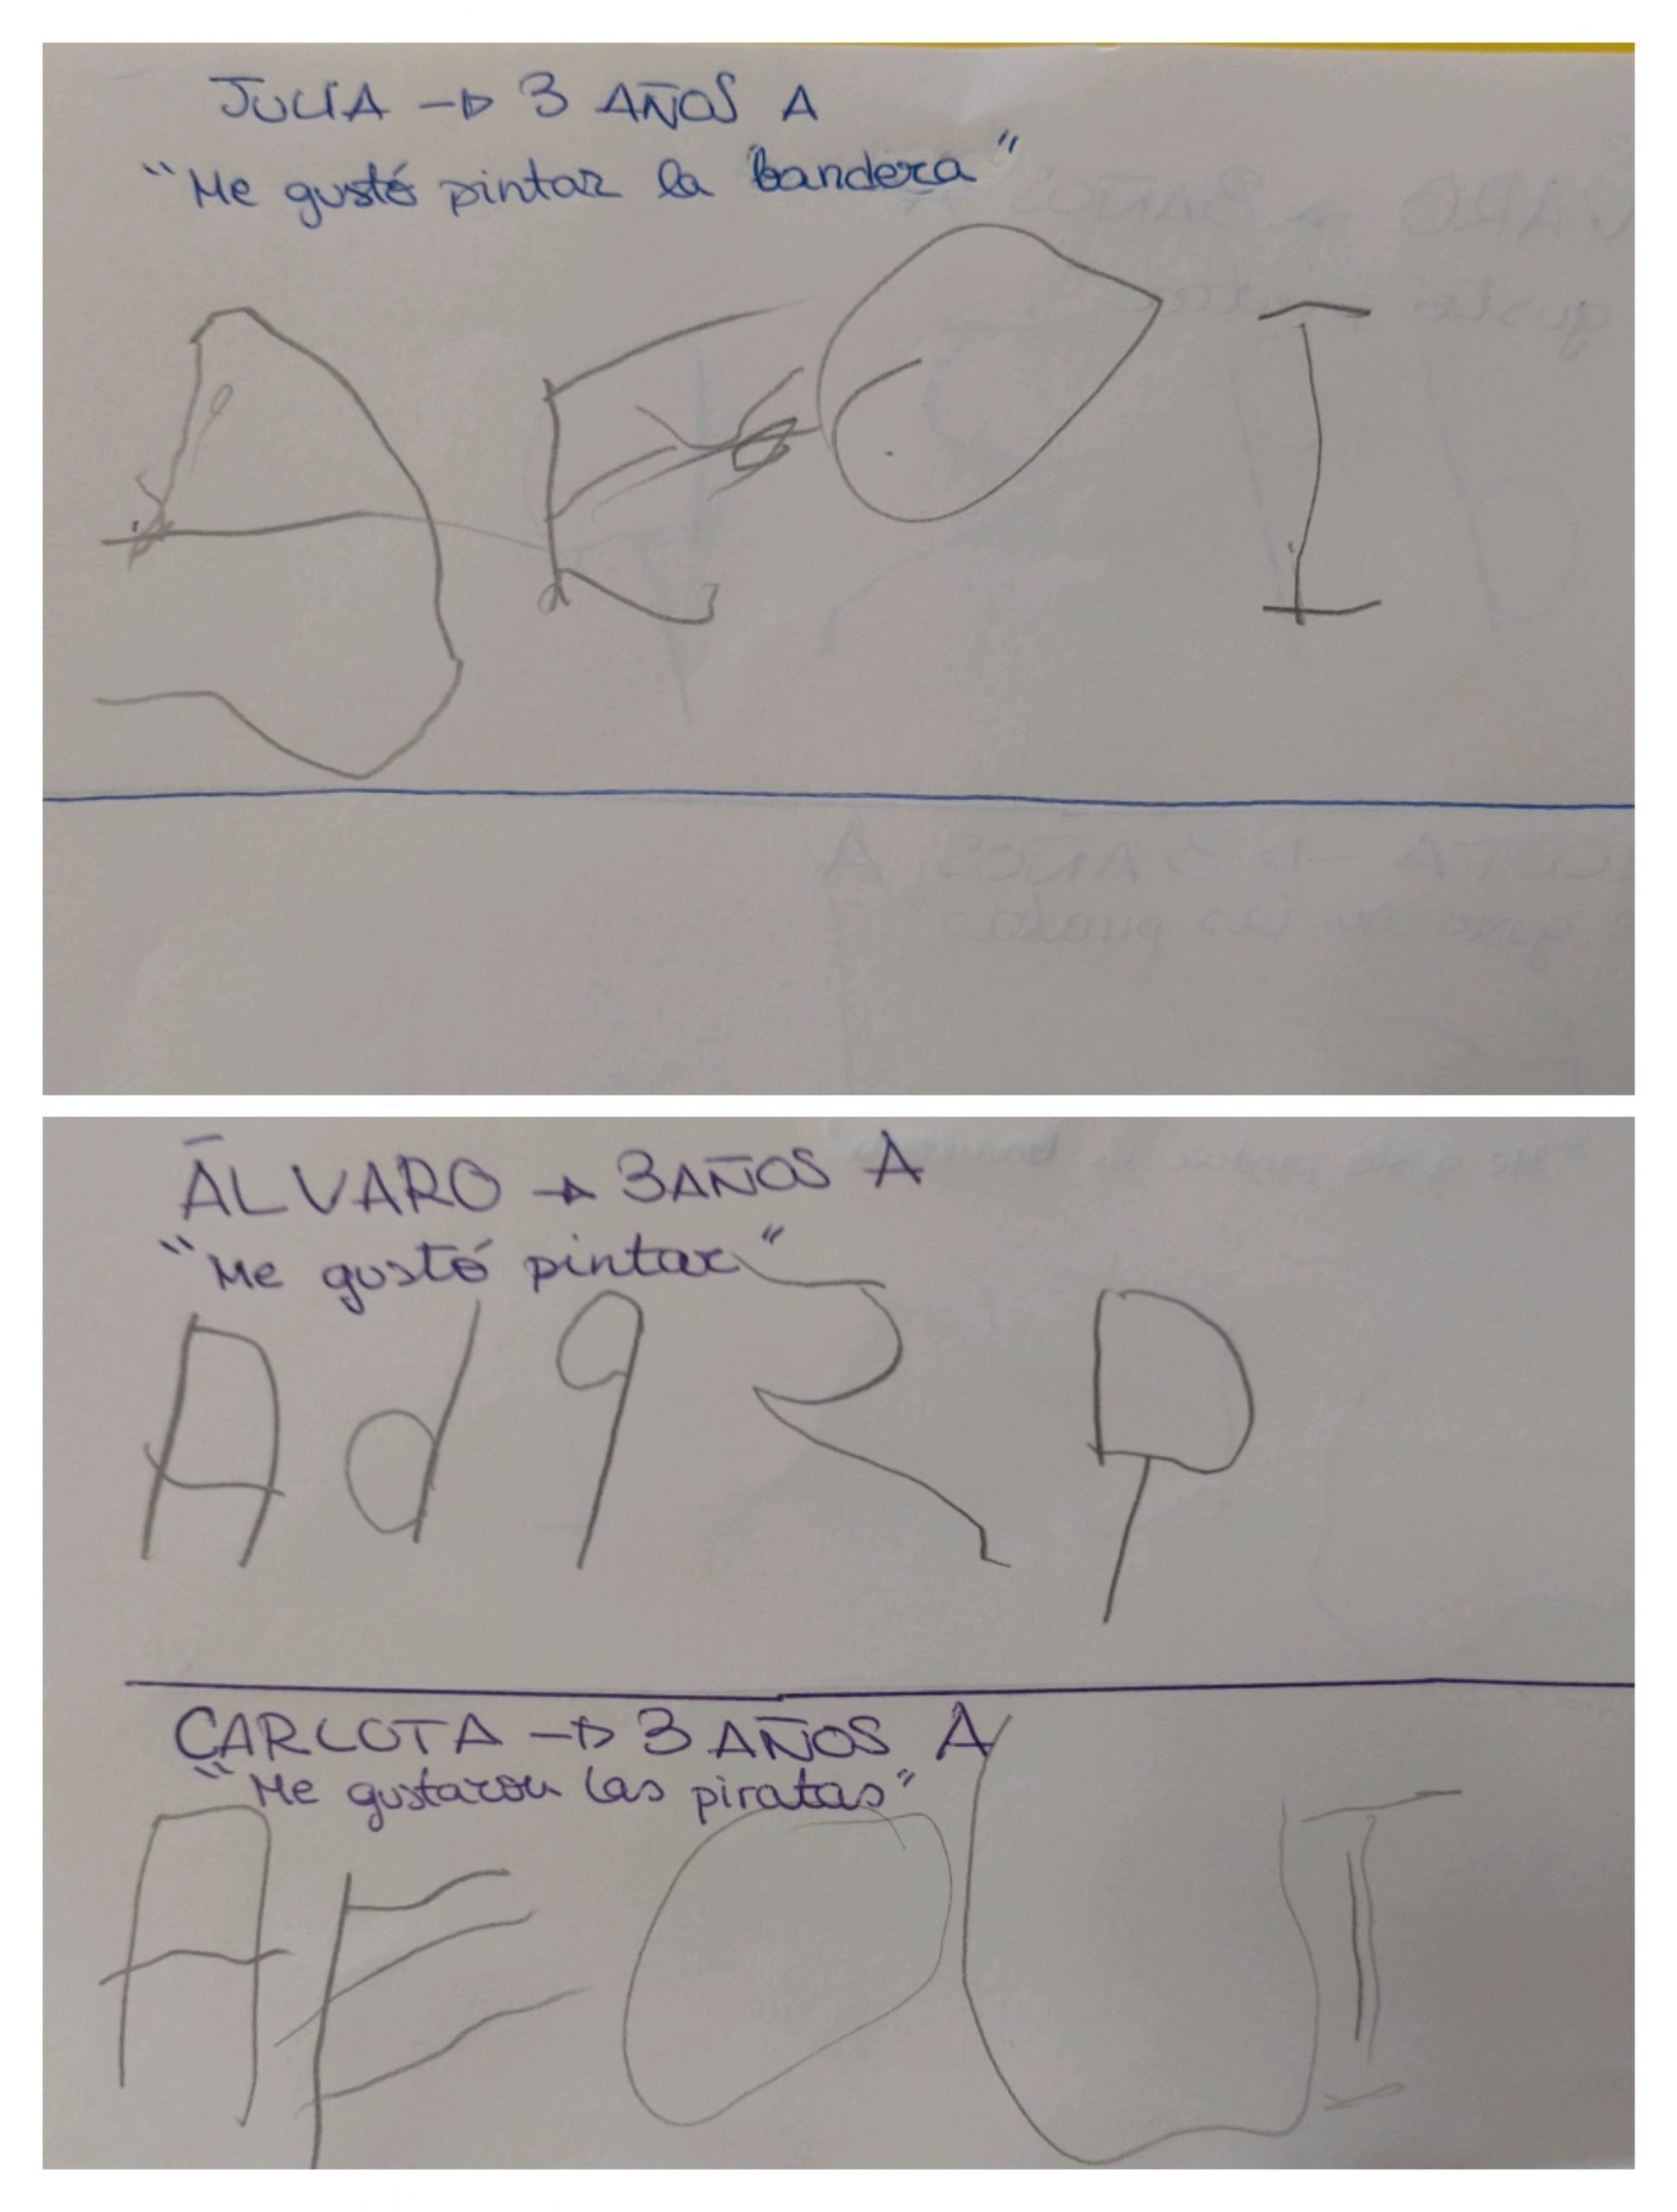 JULIA → 3 AÑOS A
"Me gustó pintar la bandera"
A E O I
ÁLVARO → 3 AÑOS A
"Me gustó pintar"
A d 9 2 P
CARLOTA → 3 AÑOS A
"Me gustaron las piratas"
A E O U I